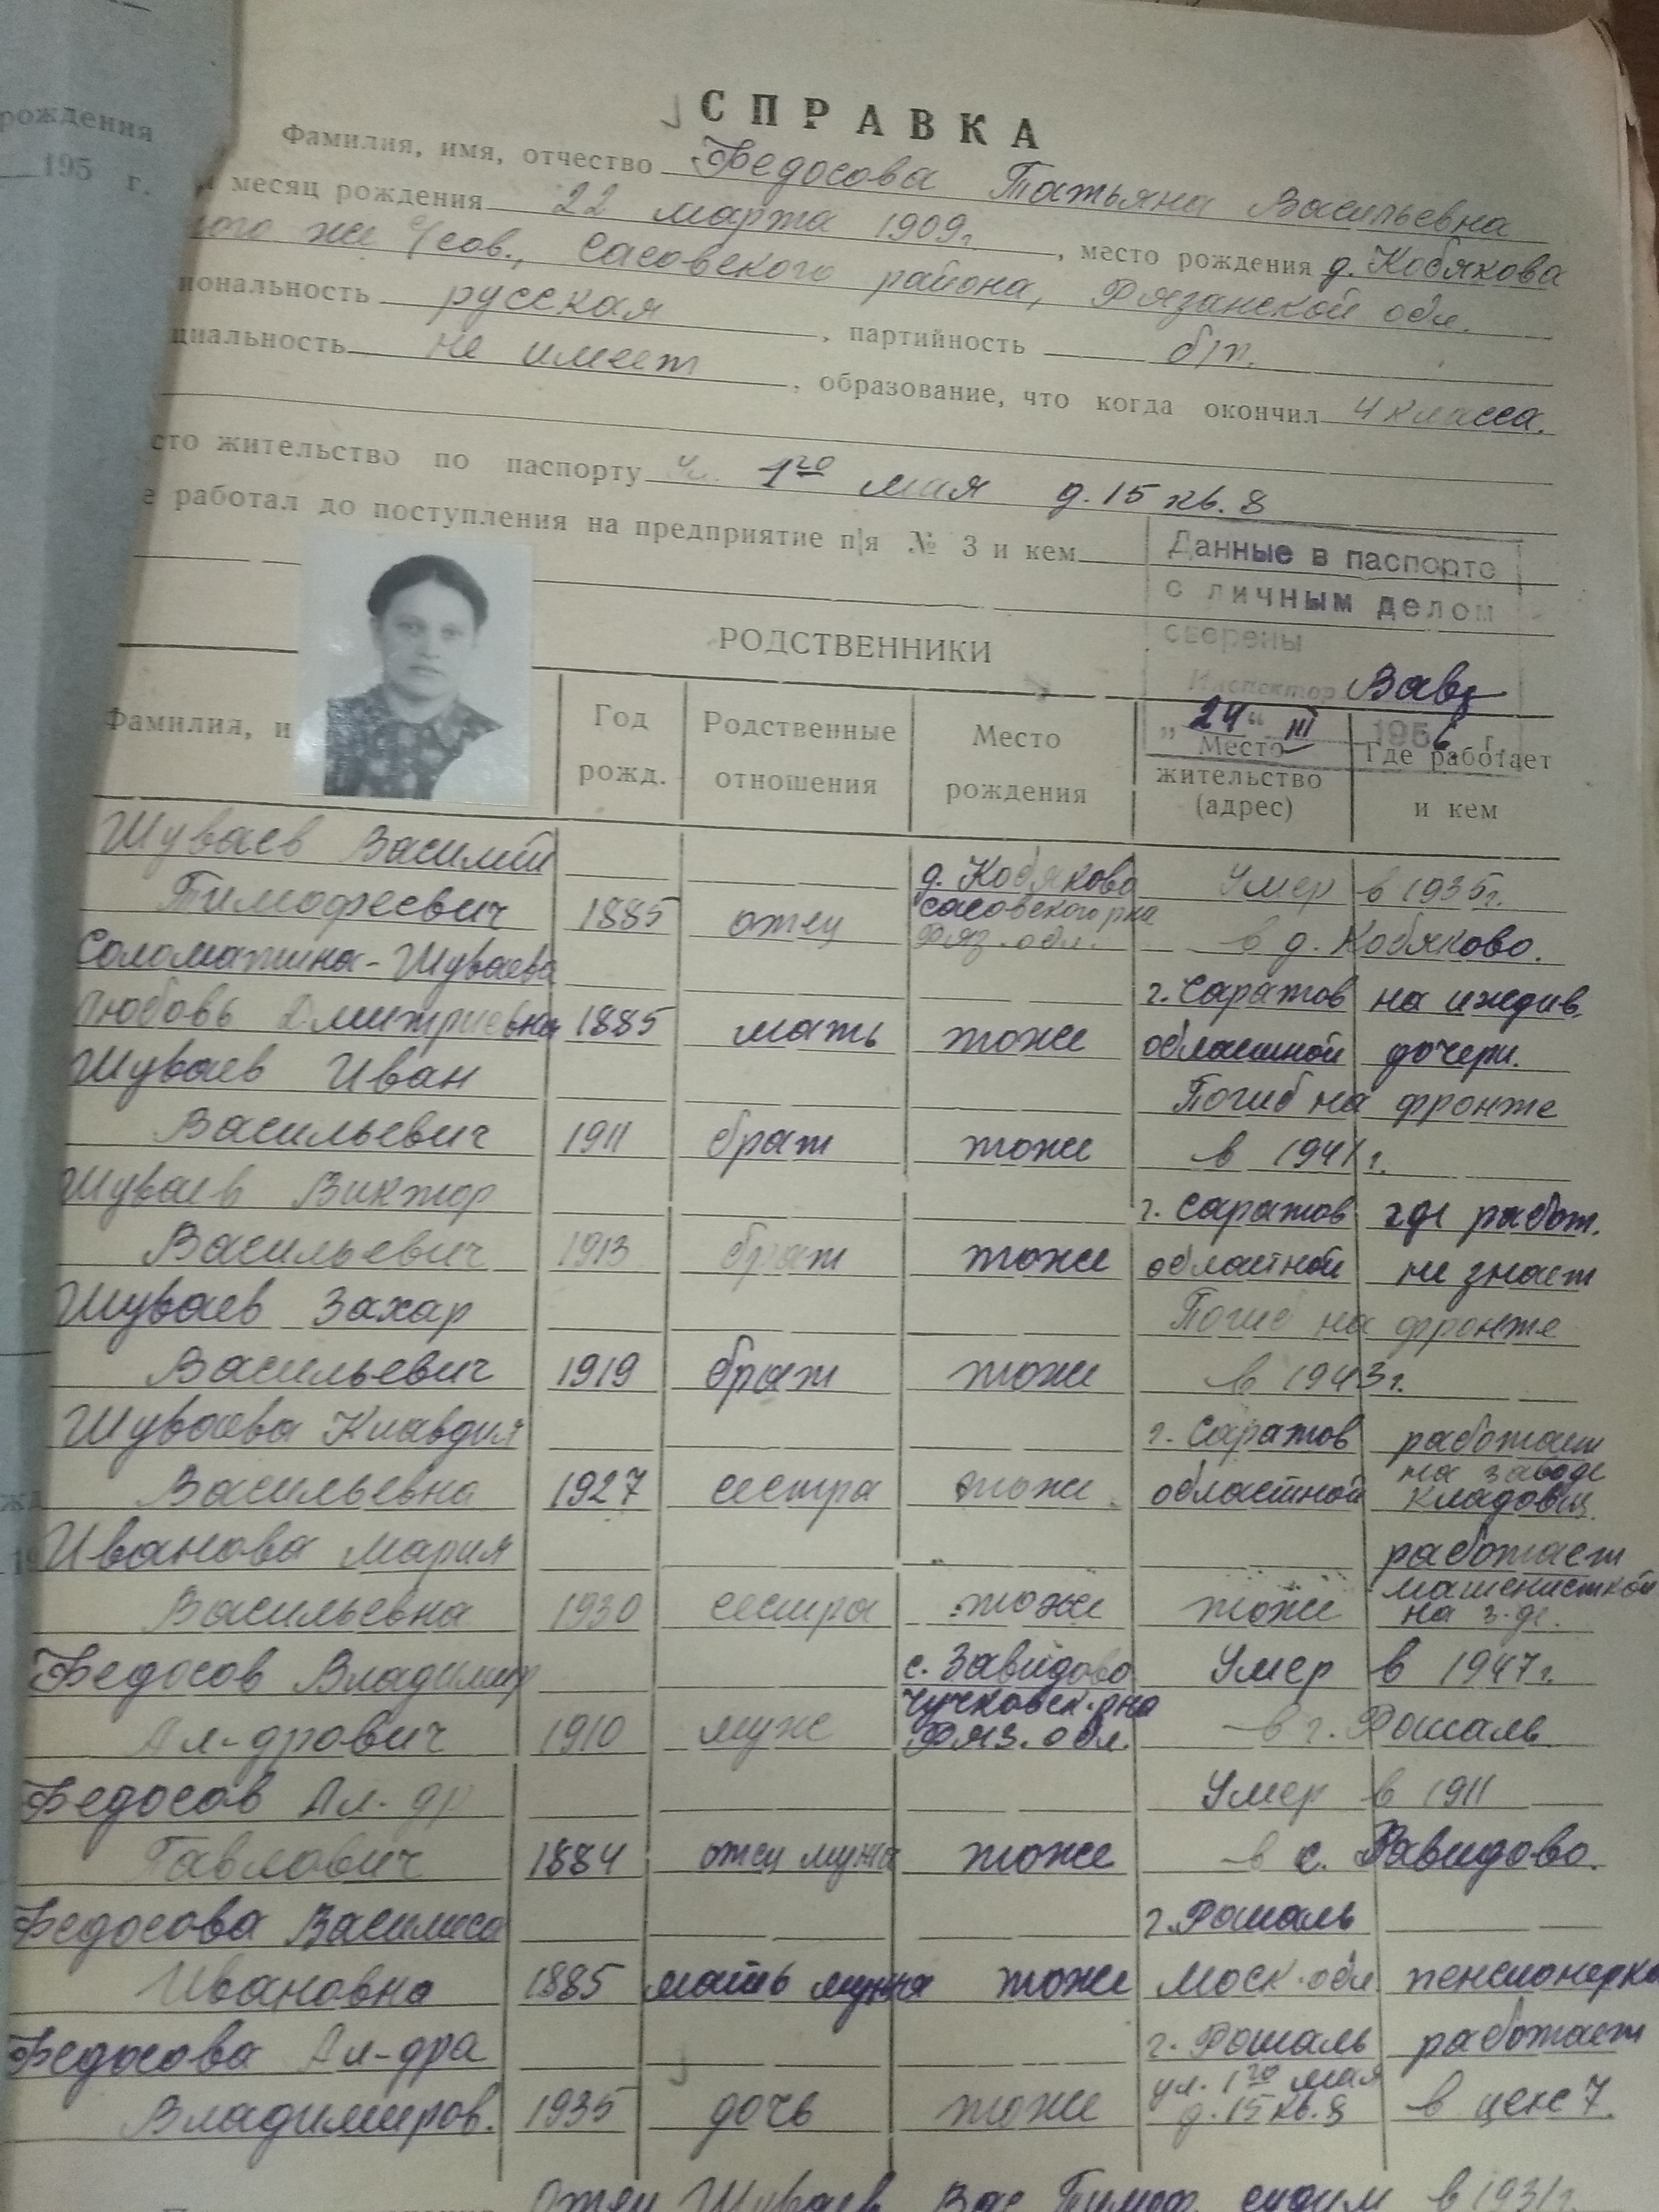 рождения
195 г.
СПРАВКА
Фамилия, имя, отчество Федосова Татьяна Васильевна
месяц рождения 22 марта 1909г, место рождения д. Кобякова
того же с/сов., Сасовского района, Рязанской обл.
иональность русская, партийность б/п.
циальность не имеет, образование, что когда окончил 4 класса.
сто жительство по паспорту ул. 1го мая д. 15 кв. 8
е работал до поступления на предприятие п/я № 3 и кем
Данные в паспорте
с личным делом
сверены
Инспектор
"24" III 1956 г
РОДСТВЕННИКИ
Фамилия, и Год рожд. Родственные отношения Место рождения Место жительство (адрес) Где работает и кем
Шуваев Василий
д. Кобяково Умер в 1935г.
Тимофеевич 1885 отец Сасовского рна Ряз. обл. в д. Кобяково.
Соломатина-Шуваева
г. Саратов на иждив.
Любовь Дмитриевна 1885 мать тоже областной дочери.
Шуваев Иван
Погиб на фронте
Васильевич 1911 брат тоже в 1941г.
Шуваев Виктор
г. Саратов где работ.
Васильевич 1913 брат тоже областной не знает
Шуваев Захар
Погиб на фронте
Васильевич 1919 брат тоже в 1943г.
Шуваева Клавдия
г. Саратов работает
Васильевна 1927 сестра тоже областной на заводе кладовщ.
Иванова Мария
работает
Васильевна 1930 сестра тоже тоже машенисткой на з-де.
Федосов Владимир
с. Завидово Умер в 1947г.
Ал-дрович 1910 муж Чучковск. рна Ряз. обл. в г. Рошаль
Федосов Ал-др
Умер в 1911
Павлович 1884 отец мужа тоже в с. Завидово.
Федосова Василиса
г. Рошаль
Ивановна 1885 мать мужа тоже Моск. обл. пенсионерка
Федосова Ал-дра
г. Рошаль работает
Владимиров. 1935 дочь тоже ул. 1го мая д. 15 кв. 8 в цехе 7.
Отец Шуваев Вас. Тимоф. судим в 1931г.